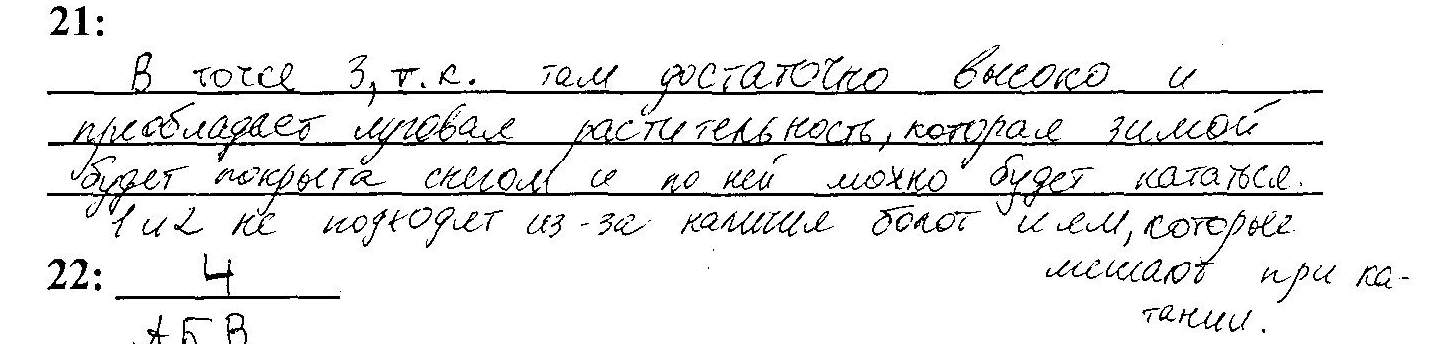 21:
В точке 3, т.к. там достаточно высоко и
преобладает луговая растительность, которая зимой
будет покрыта снегом и по ней можно будет кататься.
1 и 2 не подходят из-за наличия болот и ям, которые
мешают при ка-
тании.
22: 4
А Б В